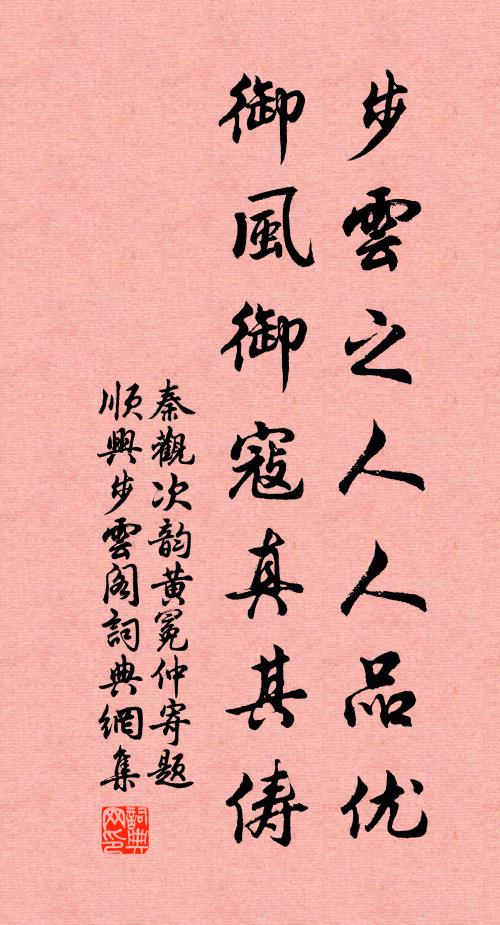 步雲之人人品优
御風御寇真其俦
秦觀次韵黄冕仲寄题
順興步雲阁詞典網集
詞典
网印